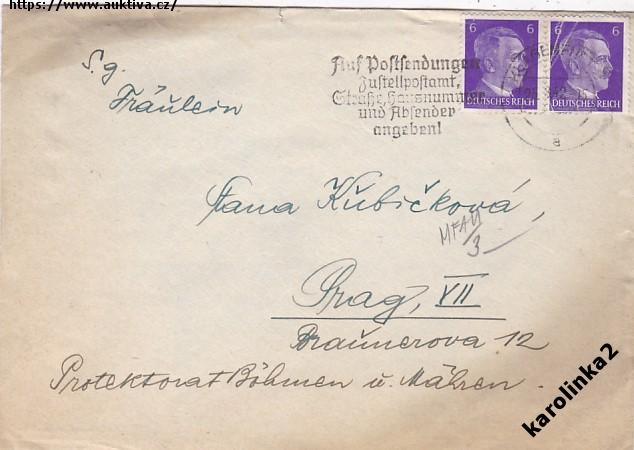 https://www.auktiva.cz/
S. g.
Fräulein
6 6
DEUTSCHES REICH DEUTSCHES REICH
Auf Postsendungen
Zustellpostamt,
Straße, Hausnummer
und Absender
angeben!
a
Hana Kubíčková,
MFAÚ
3
Prag, VII
Braunerova 12
Protektorat Böhmen u. Mähren.
karolinka2